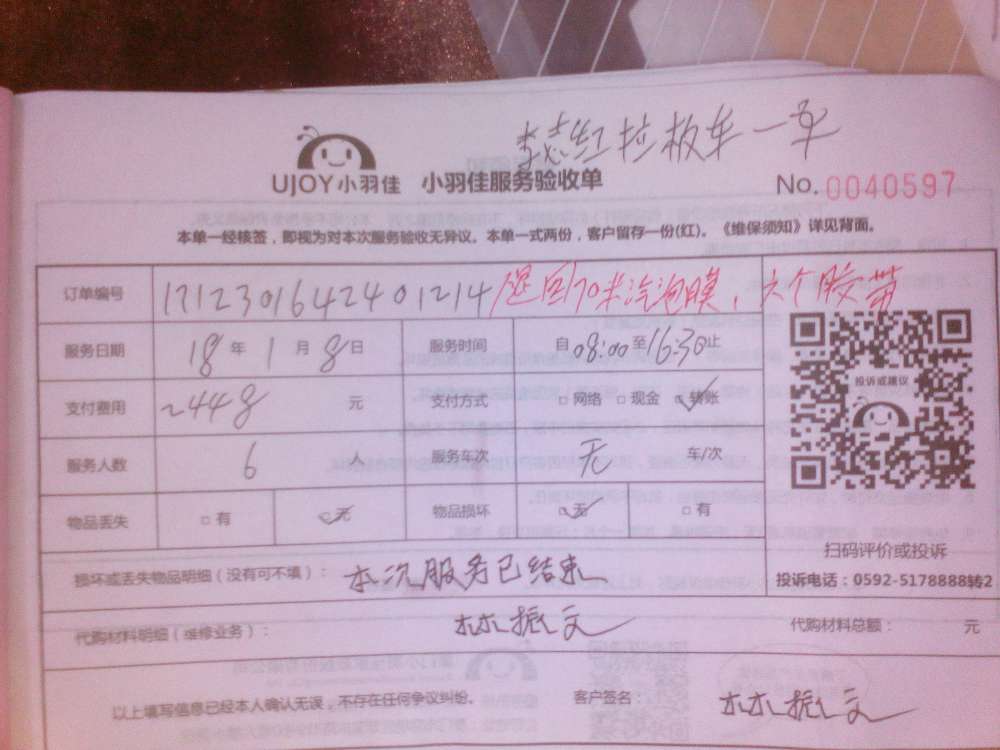 李志红拉板车一车
UJOY小羽佳 小羽佳服务验收单
No. 0040597
本单一经核签，即视为对本次服务验收无异议。本单一式两份，客户留存一份(红)。《维保须知》详见背面。
订单编号 1712301642401214 退回70米汽泡膜，六个胶带
服务日期 18年1月8日 服务时间 自08:00至16:30止
投诉或建议
支付费用 2448 元 支付方式 □网络 □现金 ☑转账
服务人数 6 人 服务车次 无 车/次
物品丢失 □有 ☑无 物品损坏 ☑无 □有
扫码评价或投诉
损坏或丢失物品明细（没有可不填）： 本次服务已结束
投诉电话：0592-5178888转2
代购材料明细（维修业务）： 林振文 代购材料总额： 元
以上填写信息已经本人确认无误，不存在任何争议纠纷。 客户签名： 林振文